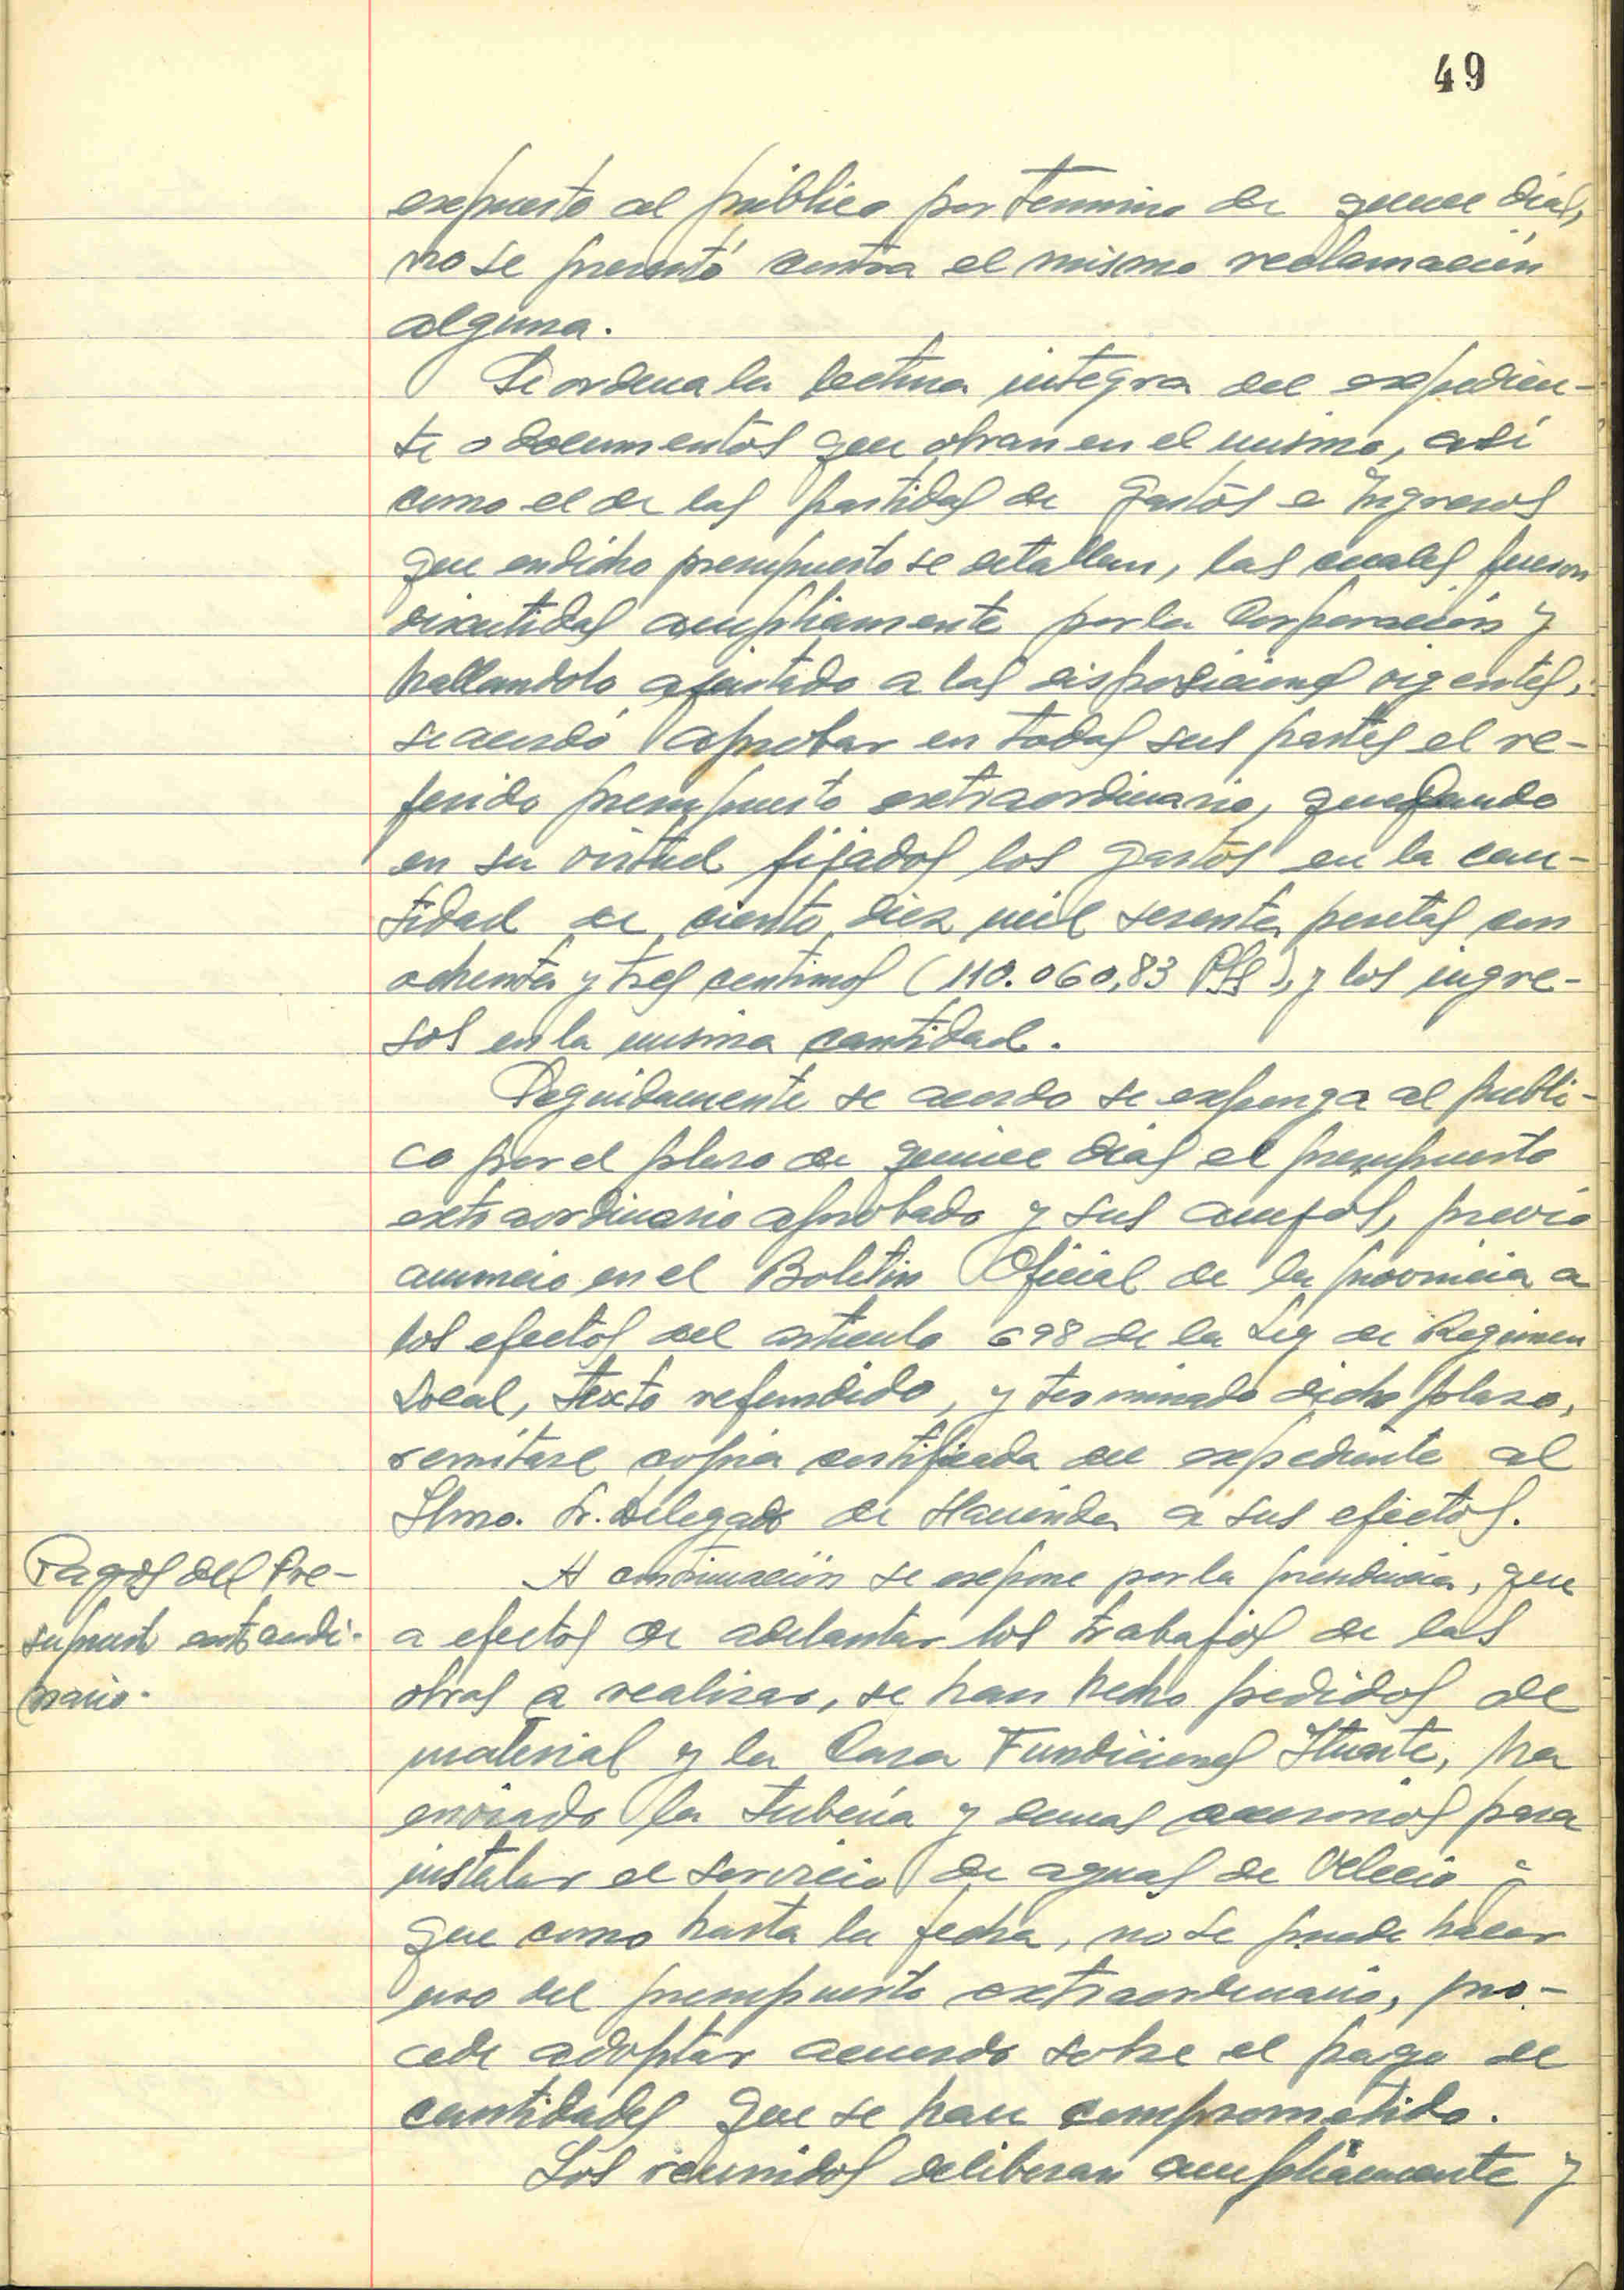 49
expuesto al público por termino de quince dias,
no se presentó contra el mismo reclamación
alguna.
Se ordena la lectura integra del expedien-
te o documentos que obran en el mismo, asi
como el de las partidas de Gastos e Ingresos
que en dicho presupuesto se detallan, las cuales fueron
discutidas ampliamente por la Corporación y
hallandolo ajustado a las disposiciones vigentes,
se acordó aprobar en todas sus partes el re-
ferido presupuesto extraordinario, quedando
en su virtud fijados los gastos en la can-
tidad de ciento diez mil sesenta pesetas con
ochenta y tres centimos (110.060,83 Pts), y los ingre-
sos en la misma cantidad.
Seguidamente se acordo se exponga al publi-
co por el plazo de quince dias el presupuesto
extraordinario aprobado y sus anejos, previo
anuncio en el Boletin Oficial de la provincia a
los efectos del articulo 698 de la Ley de Regimen
Local, texto refundido, y terminado dicho plazo,
remitase copia certificada del expediente al
Ilmo. Sr. Delegado de Hacienda a sus efectos.
Pagos del Pre-
supuesto extraordi-
nario.
A continuación se expone por la presidencia, que
a efectos de adelantar los trabajos de las
obras a realizar, se han hecho pedidos de
material y la Casa Fundiciones Ituarte, ha
enviado la tubería y demas accesorios para
instalar el servicio de aguas de Velecio y
que como hasta la fecha, no se puede hacer
uso del presupuesto extraordinario, pro-
cede adoptar acuerdo sobre el pago de
cantidades que se han comprometido.
Los reunidos deliberan ampliamente y